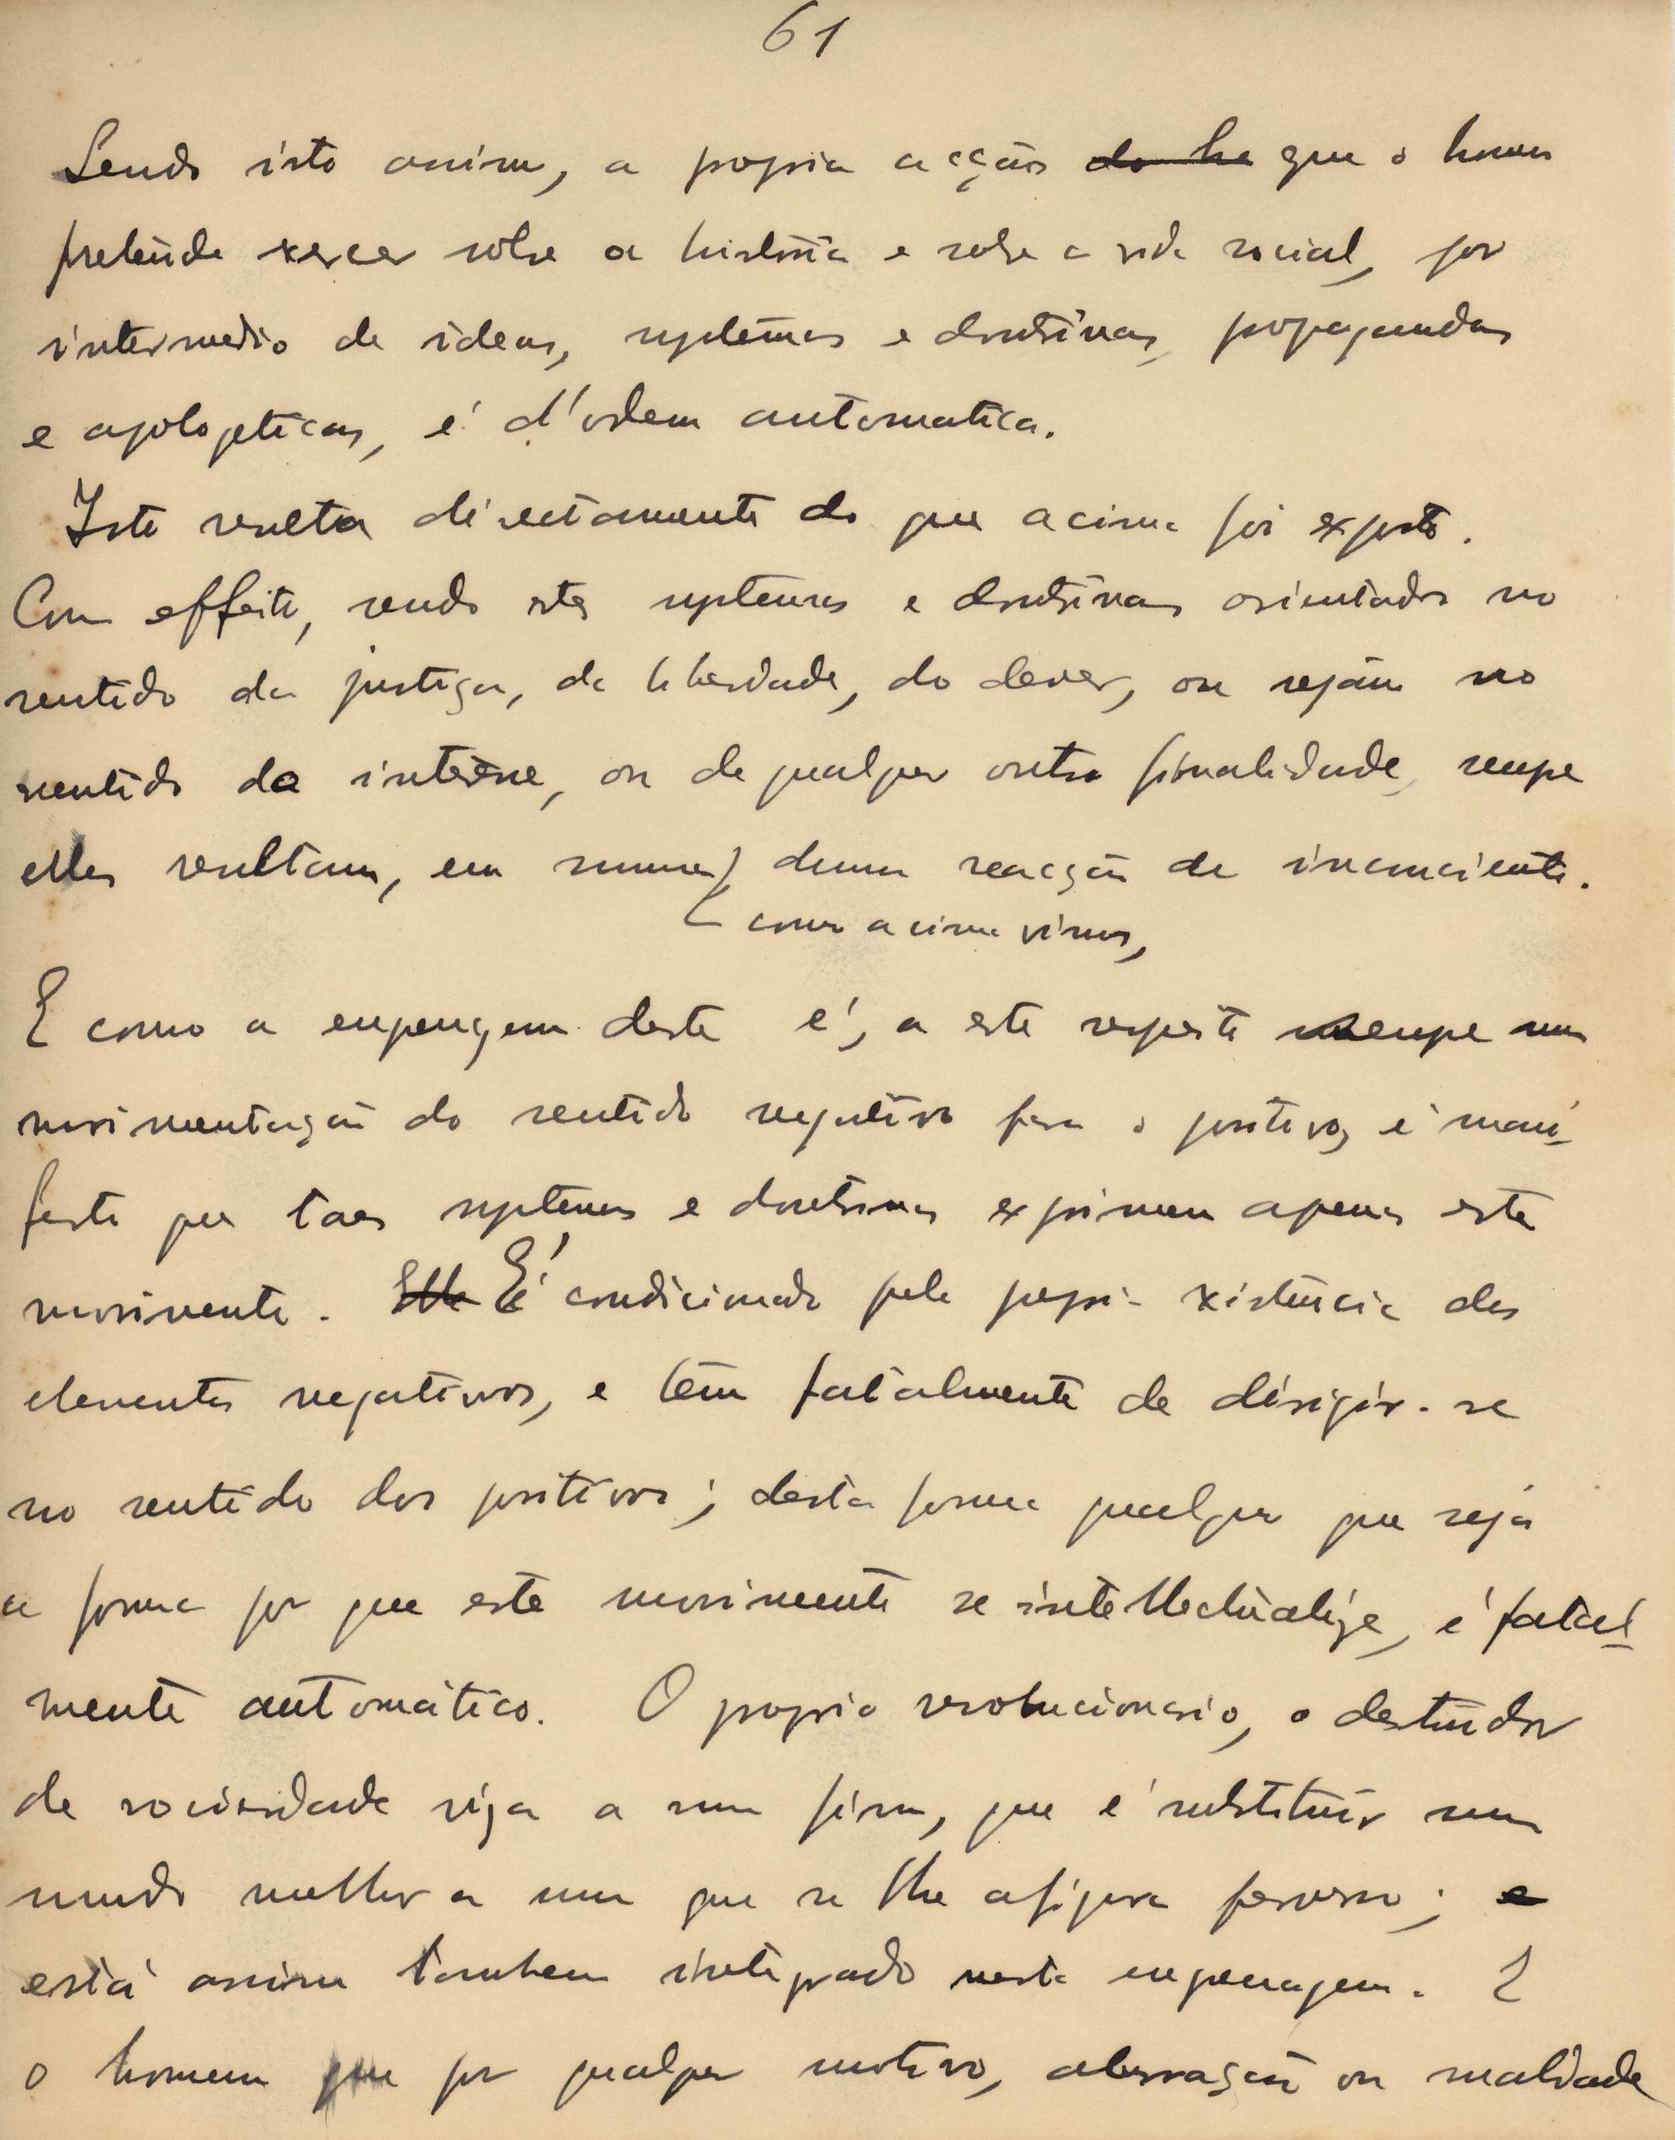 61
Sendo isto assim, a propria acção do ho que o homem
pretende exercer sobre a história e sobre a vida social, por
intermedio de ideas, systemas e doutrinas, propagandas
e apologeticas, é d'ordem automatica.
Isto resulta directamente do que acima foi exposto.
Com effeito, sendo estes systemas e doutrinas orientados no
sentido da justiça, da liberdade, do dever, ou sejam no
sentido do interesse, ou de qualquer outra finalidade, sempre
elles resultam, em summa, duma reacção do inconsciente.
como acima vimos,
E como a engenagem deste é, a este respeito sempre uma
movimentação do sentido negativo para o positivo, é mani-
festo que taes systemas e doutrinas exprimem apenas este
movimento. Elle É condicionado pela propria existencia dos
elementos negativos, e têm fatalmente de dirigir-se
no sentido dos positivos; desta forma qualquer que seja
a forma por que este movimento se intellectualize, é fatal-
mente automático. O proprio revolucionario, o destruidor
de sociedade visa a um fim, que é substituir um
mundo melhor a um que se lhe afigura perverso; e
está assim tambem integrado nesta engenagem. E
o homem que por qualquer motivo, aberração ou maldade